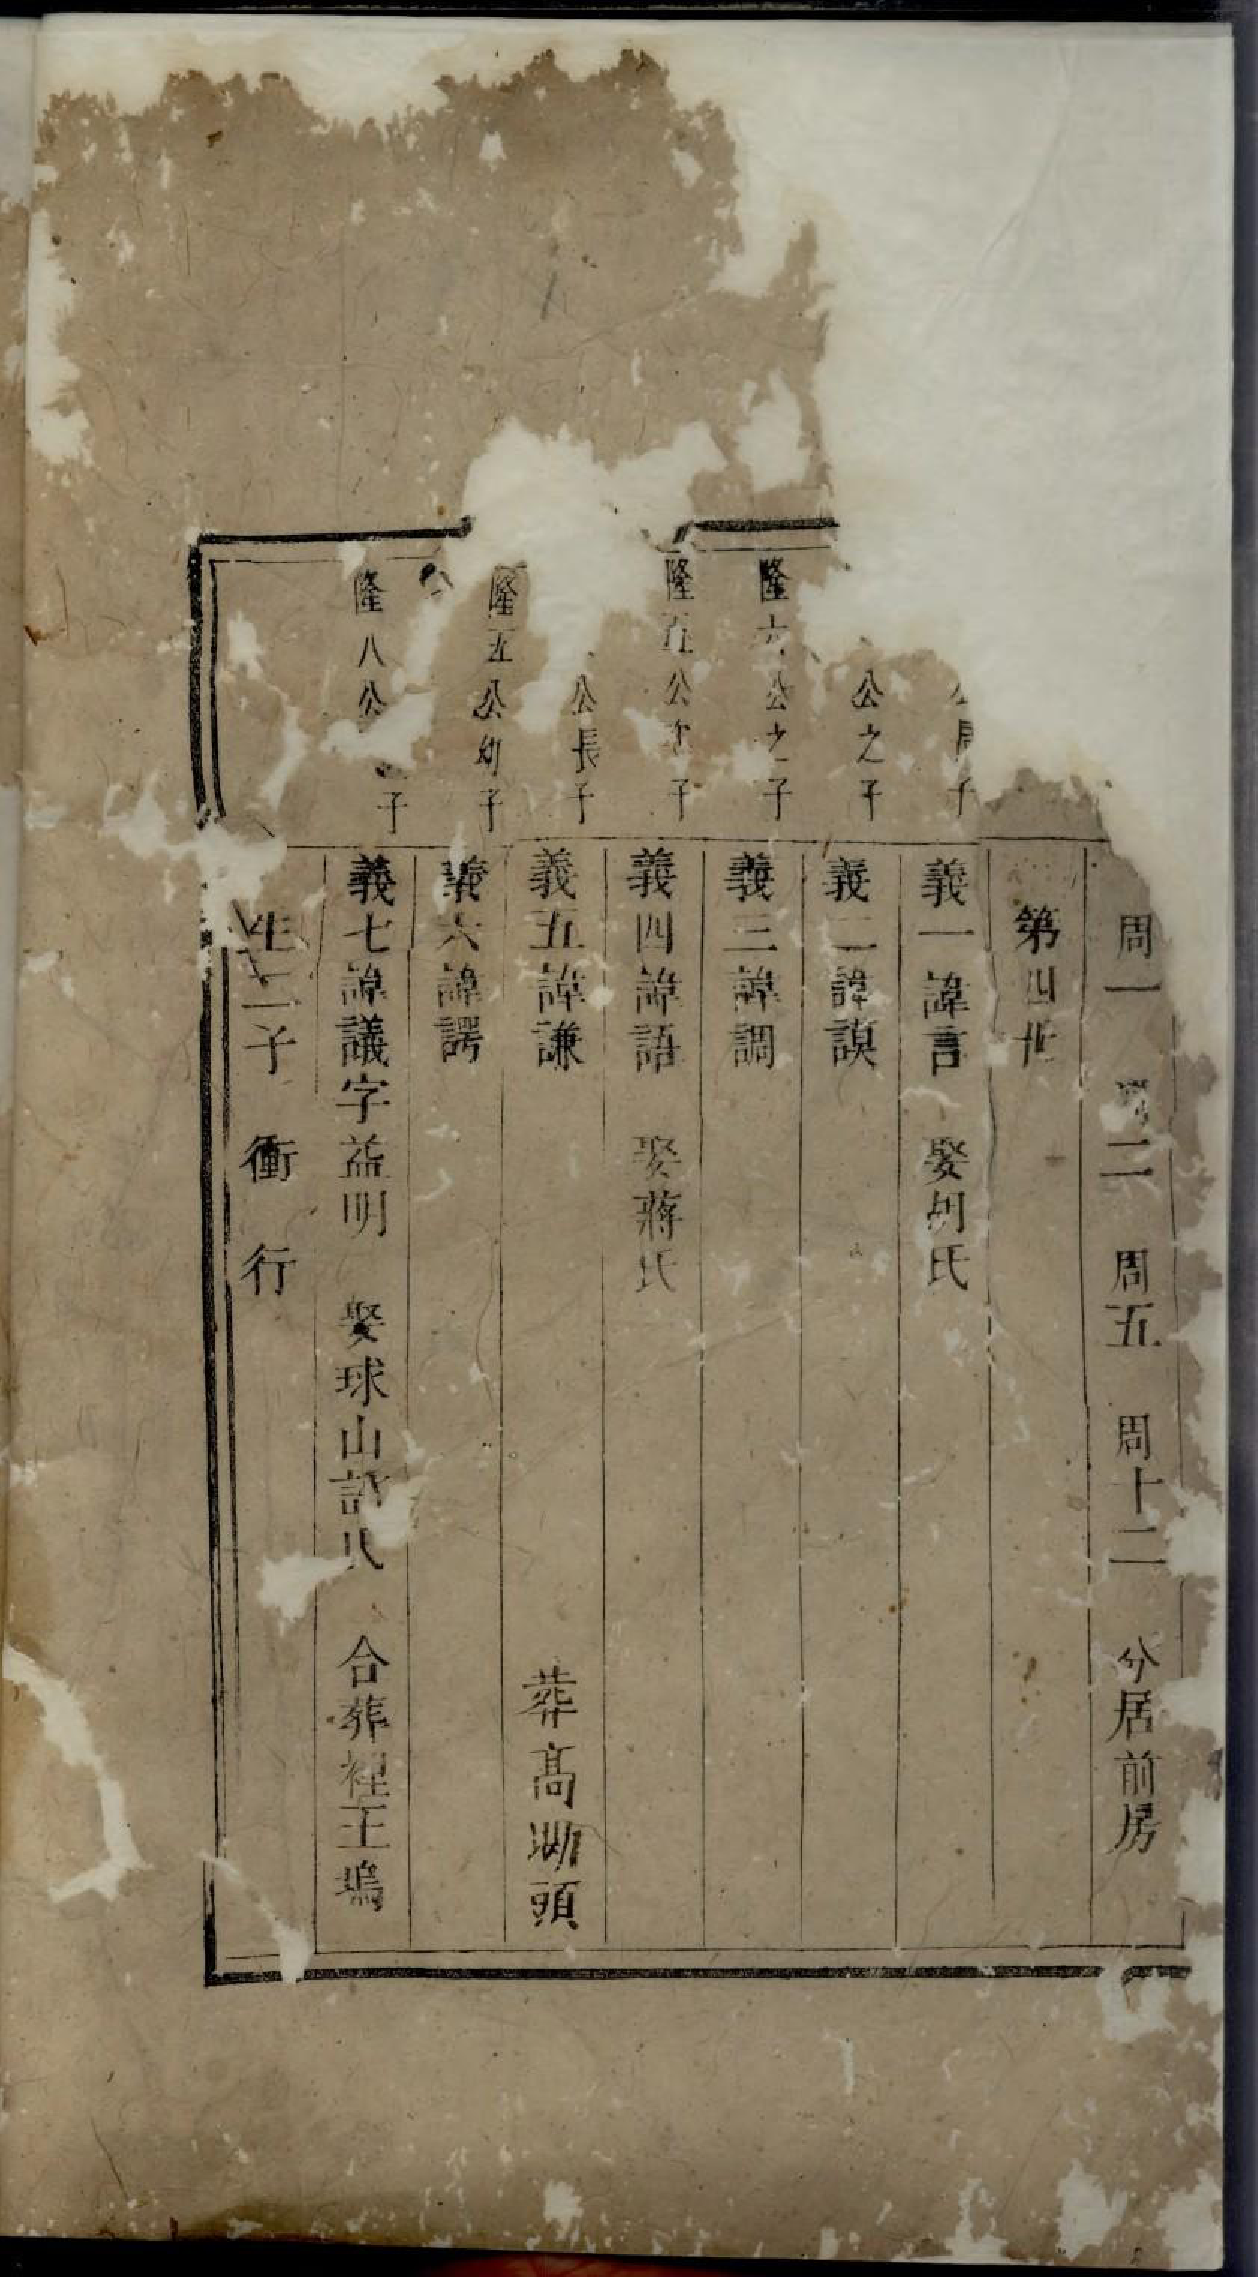 周一 周二 周五 周十二 分居前房
第四世
公長子 義一諱言 娶胡氏
公之子 義二諱謨
隆六公之子 義三諱調
隆五公次子 義四諱語 娶蔣氏
公長子 義五諱謙 葬高坳頭
隆五公幼子 義六諱諤
隆八公子 義七諱議字益明 娶球山許氏 合葬裡王塢
生二子 衝 行